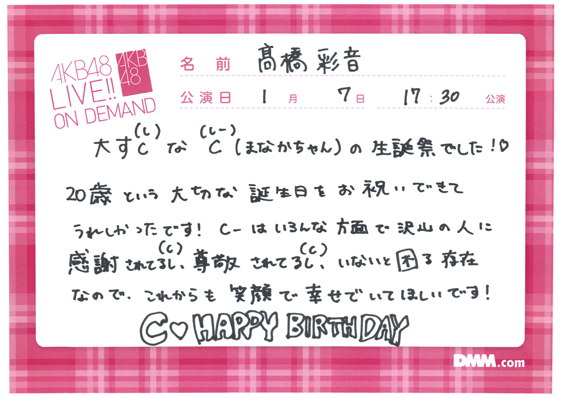 AKB48
LIVE!!
ON DEMAND
AKB
48
名前 髙橋彩音
公演日 1月 7日 17:30 公演
大すC(し)な C(しー)(まなかちゃん)の生誕祭でした!♡
20歳という大切な誕生日をお祝いできて
うれしかったです! C-はいろんな方面で沢山の人に
感謝されてるし(C)、尊敬されてるし(C)、いないと困る存在
なので、これからも笑顔で幸せでいてほしいです!
C♥HAPPY BIRTHDAY
DMM.com